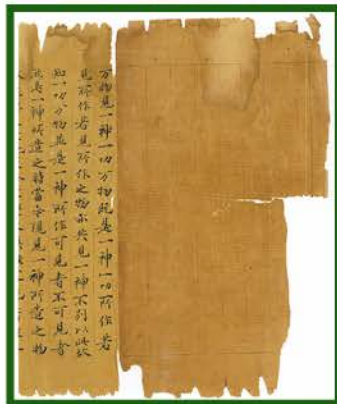 万物見一神一切万物既是一神一切所作若
見所作若見所作之物亦共見一神不別以此故
知一切万物並是一神所作可見者不可見者
並是一神所造之時當今現見一神所造之物